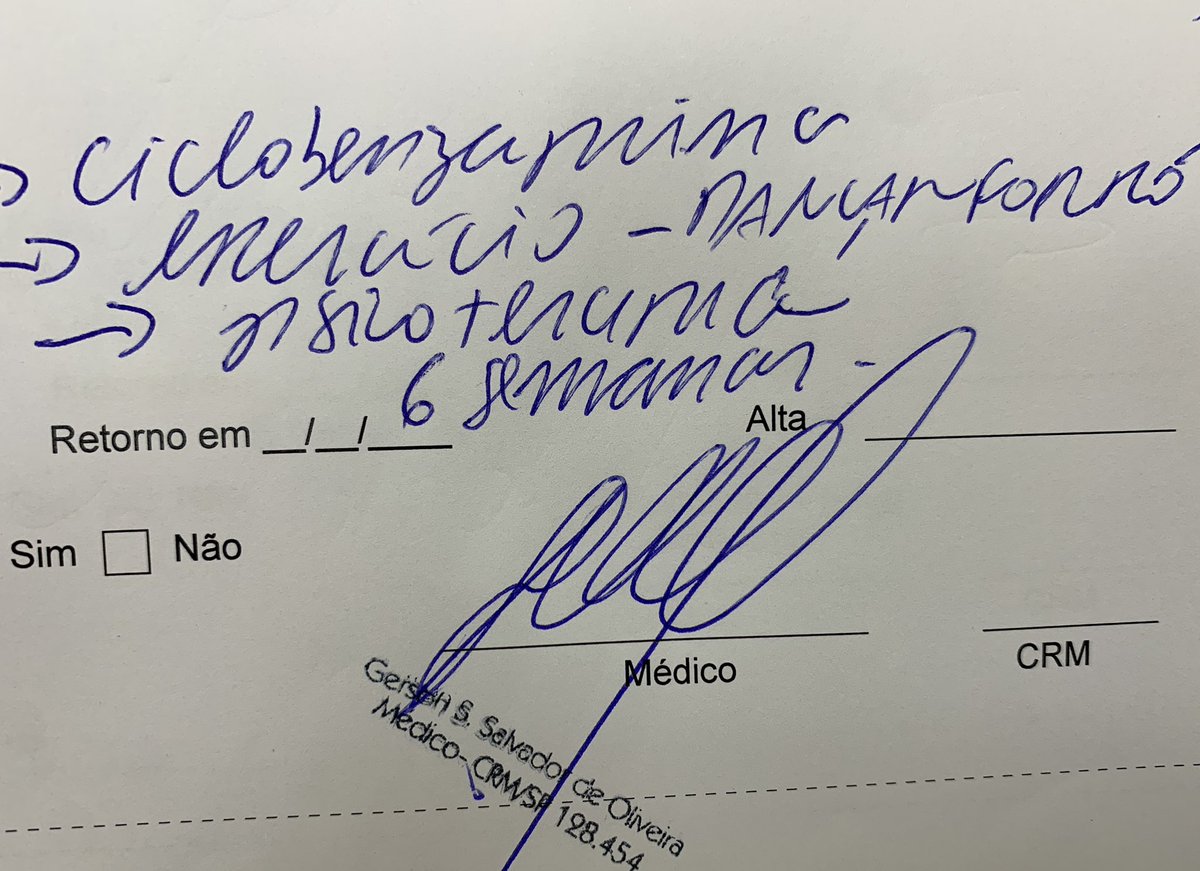 → ciclobenzaprina
→ exercício - DANÇAR FORRÓ
→ fisioterapia
6 semanas -
Retorno em __/__/____ Alta
Sim Não
Médico CRM
Gerson S. Salvador de Oliveira
Médico - CRM/SP 128.454